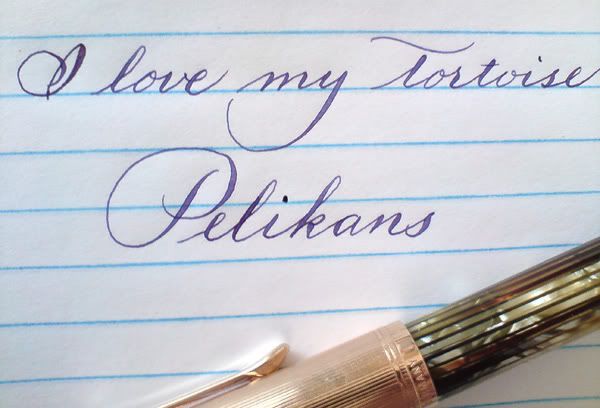 I love my Tortoise
Pelikans